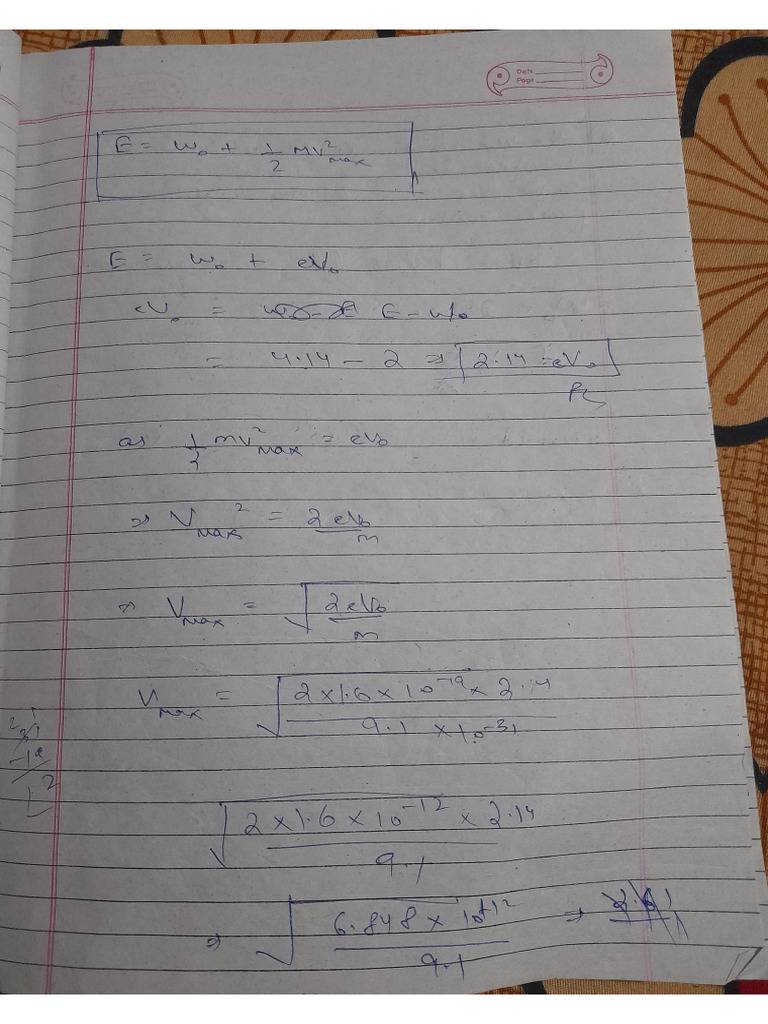 Date
Page
E = W₀ + 1/2 mv²max
E = W₀ + eV₀
eV₀ = E - W₀
= 4.14 - 2 ⇒ 2.14 = eV₀
as 1/2 mv²max = eV₀
⇒ Vmax² = 2eV₀/m
⇒ Vmax = √(2eV₀/m)
Vmax = √(2×1.6×10⁻¹⁹×2.14/9.1×10⁻³¹)
√(2×1.6×10⁻¹²×2.14/9.1)
⇒ √(6.848×10⁺¹²/9.1) ⇒